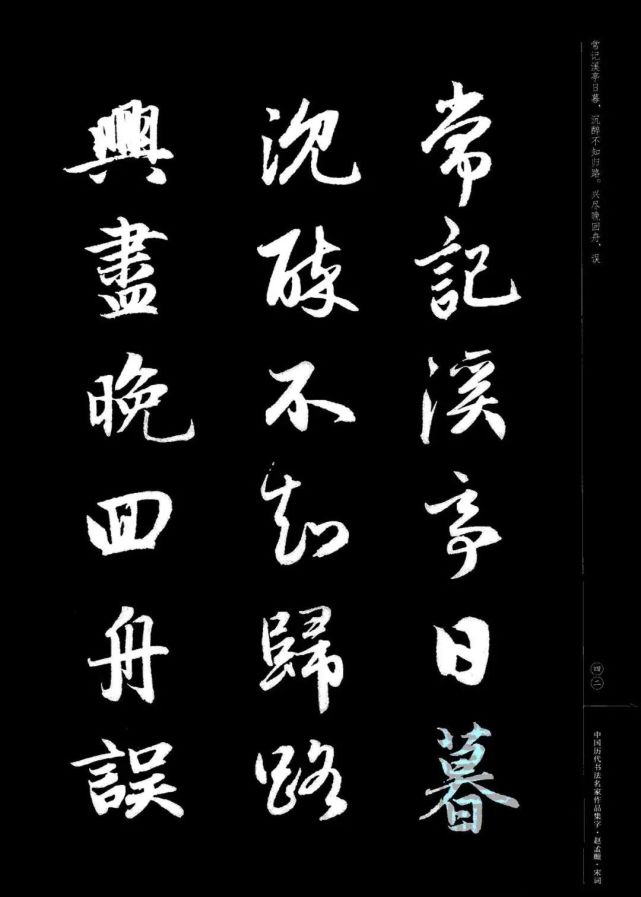 常記溪亭日暮
沉醉不知歸路
興盡晚回舟誤
常记溪亭日暮，沉醉不知归路。兴尽晚回舟，误
四二
中国历代书法名家作品集字·赵孟頫·宋词